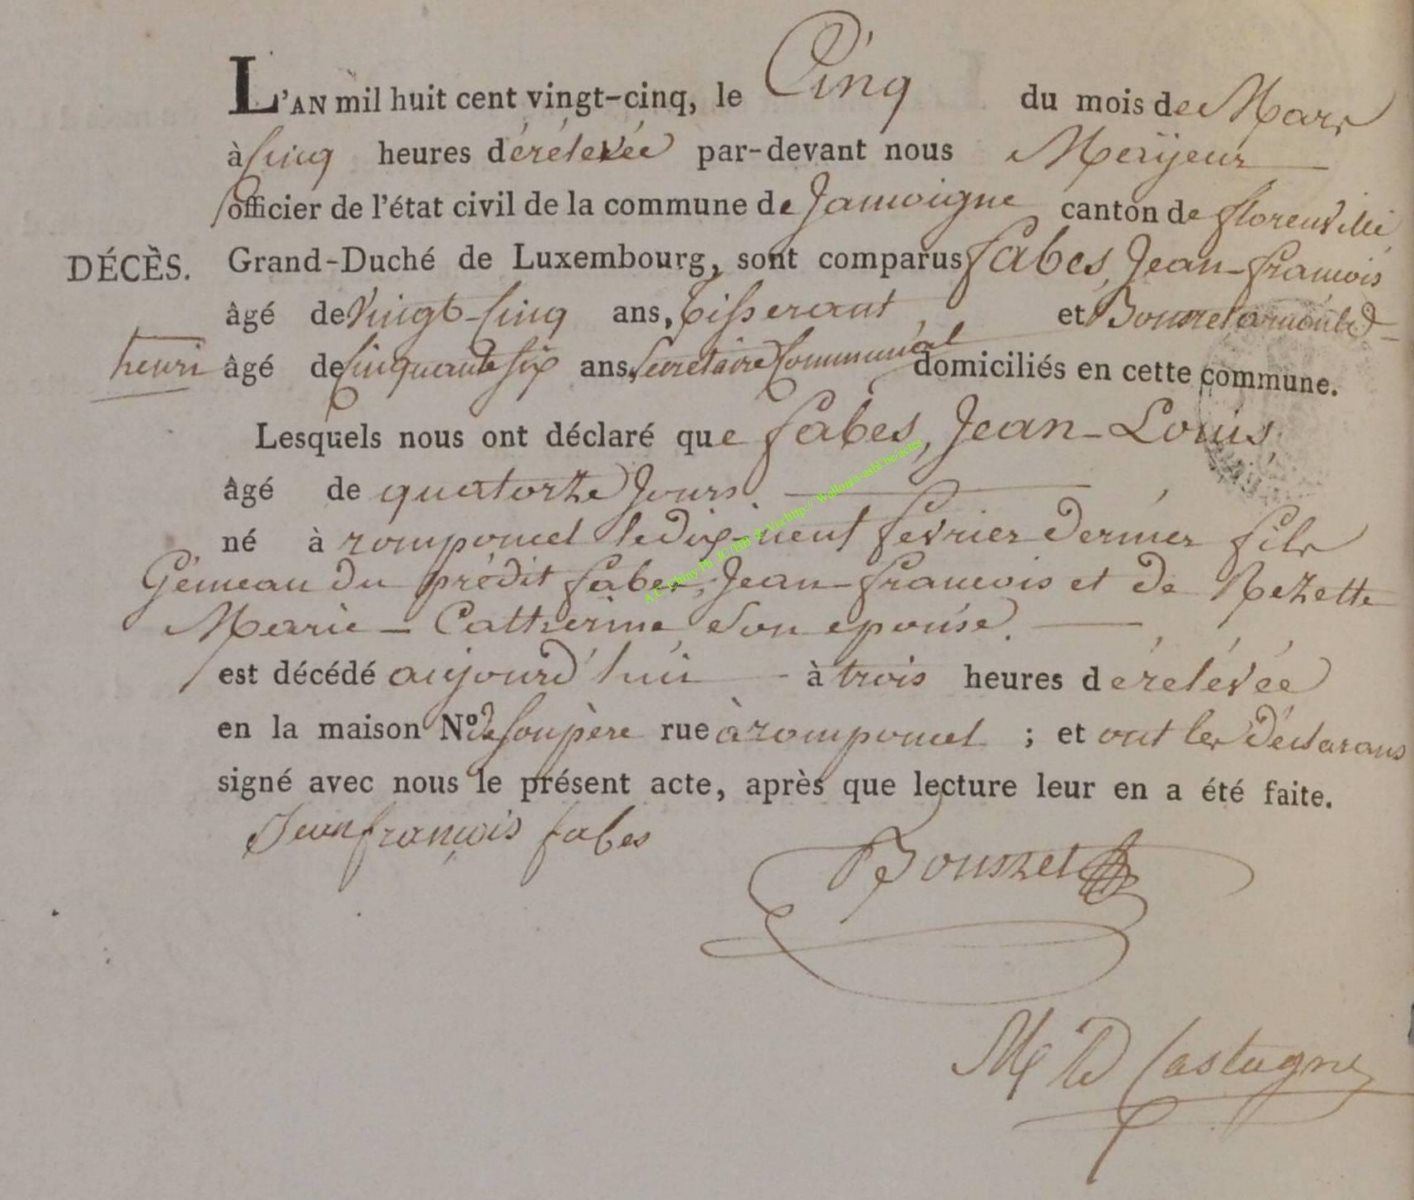 L'AN mil huit cent vingt-cinq, le Cinq du mois de Mars
à Cinq heures de rélevée par-devant nous Meÿeur
officier de l'état civil de la commune de Jamoigne canton de florenville
DÉCÈS. Grand-Duché de Luxembourg, sont comparus fabes, Jean-francois
âgé de Vingt-Cinq ans, tisserant et Bousret arnould
henri âgé de Cinquante Six ans, Secretaire Communal domiciliés en cette commune.
Lesquels nous ont déclaré que fabes, Jean-Louis,
âgé de quatorze Jours
né à romponcel le dix-neuf fevrier dernier fils
Gémeau du prédit fabes, Jean-francois et de Rezette
Marie-Catherine, Son epouse.
est décédé aujourd'hui à trois heures de rélévée
en la maison N° de Son père rue à romponcel ; et ont les déclarans
signé avec nous le présent acte, après que lecture leur en a été faite.
Jean françois fabes
Bousret
M D Castagne